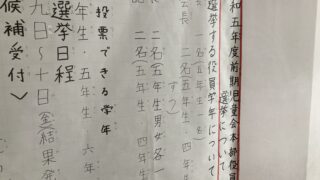 和五年度前期児童会本部役員
選挙について
選挙する役員学年について
長 一名(五年生 名)
会長 二名(五年生・四年生
ずつ)
二名(五年生男女各一
二名(五年生・四年生
投票できる学年
年生・五年生 六年
選挙日程
九日~十日 結果発
候補受付〉